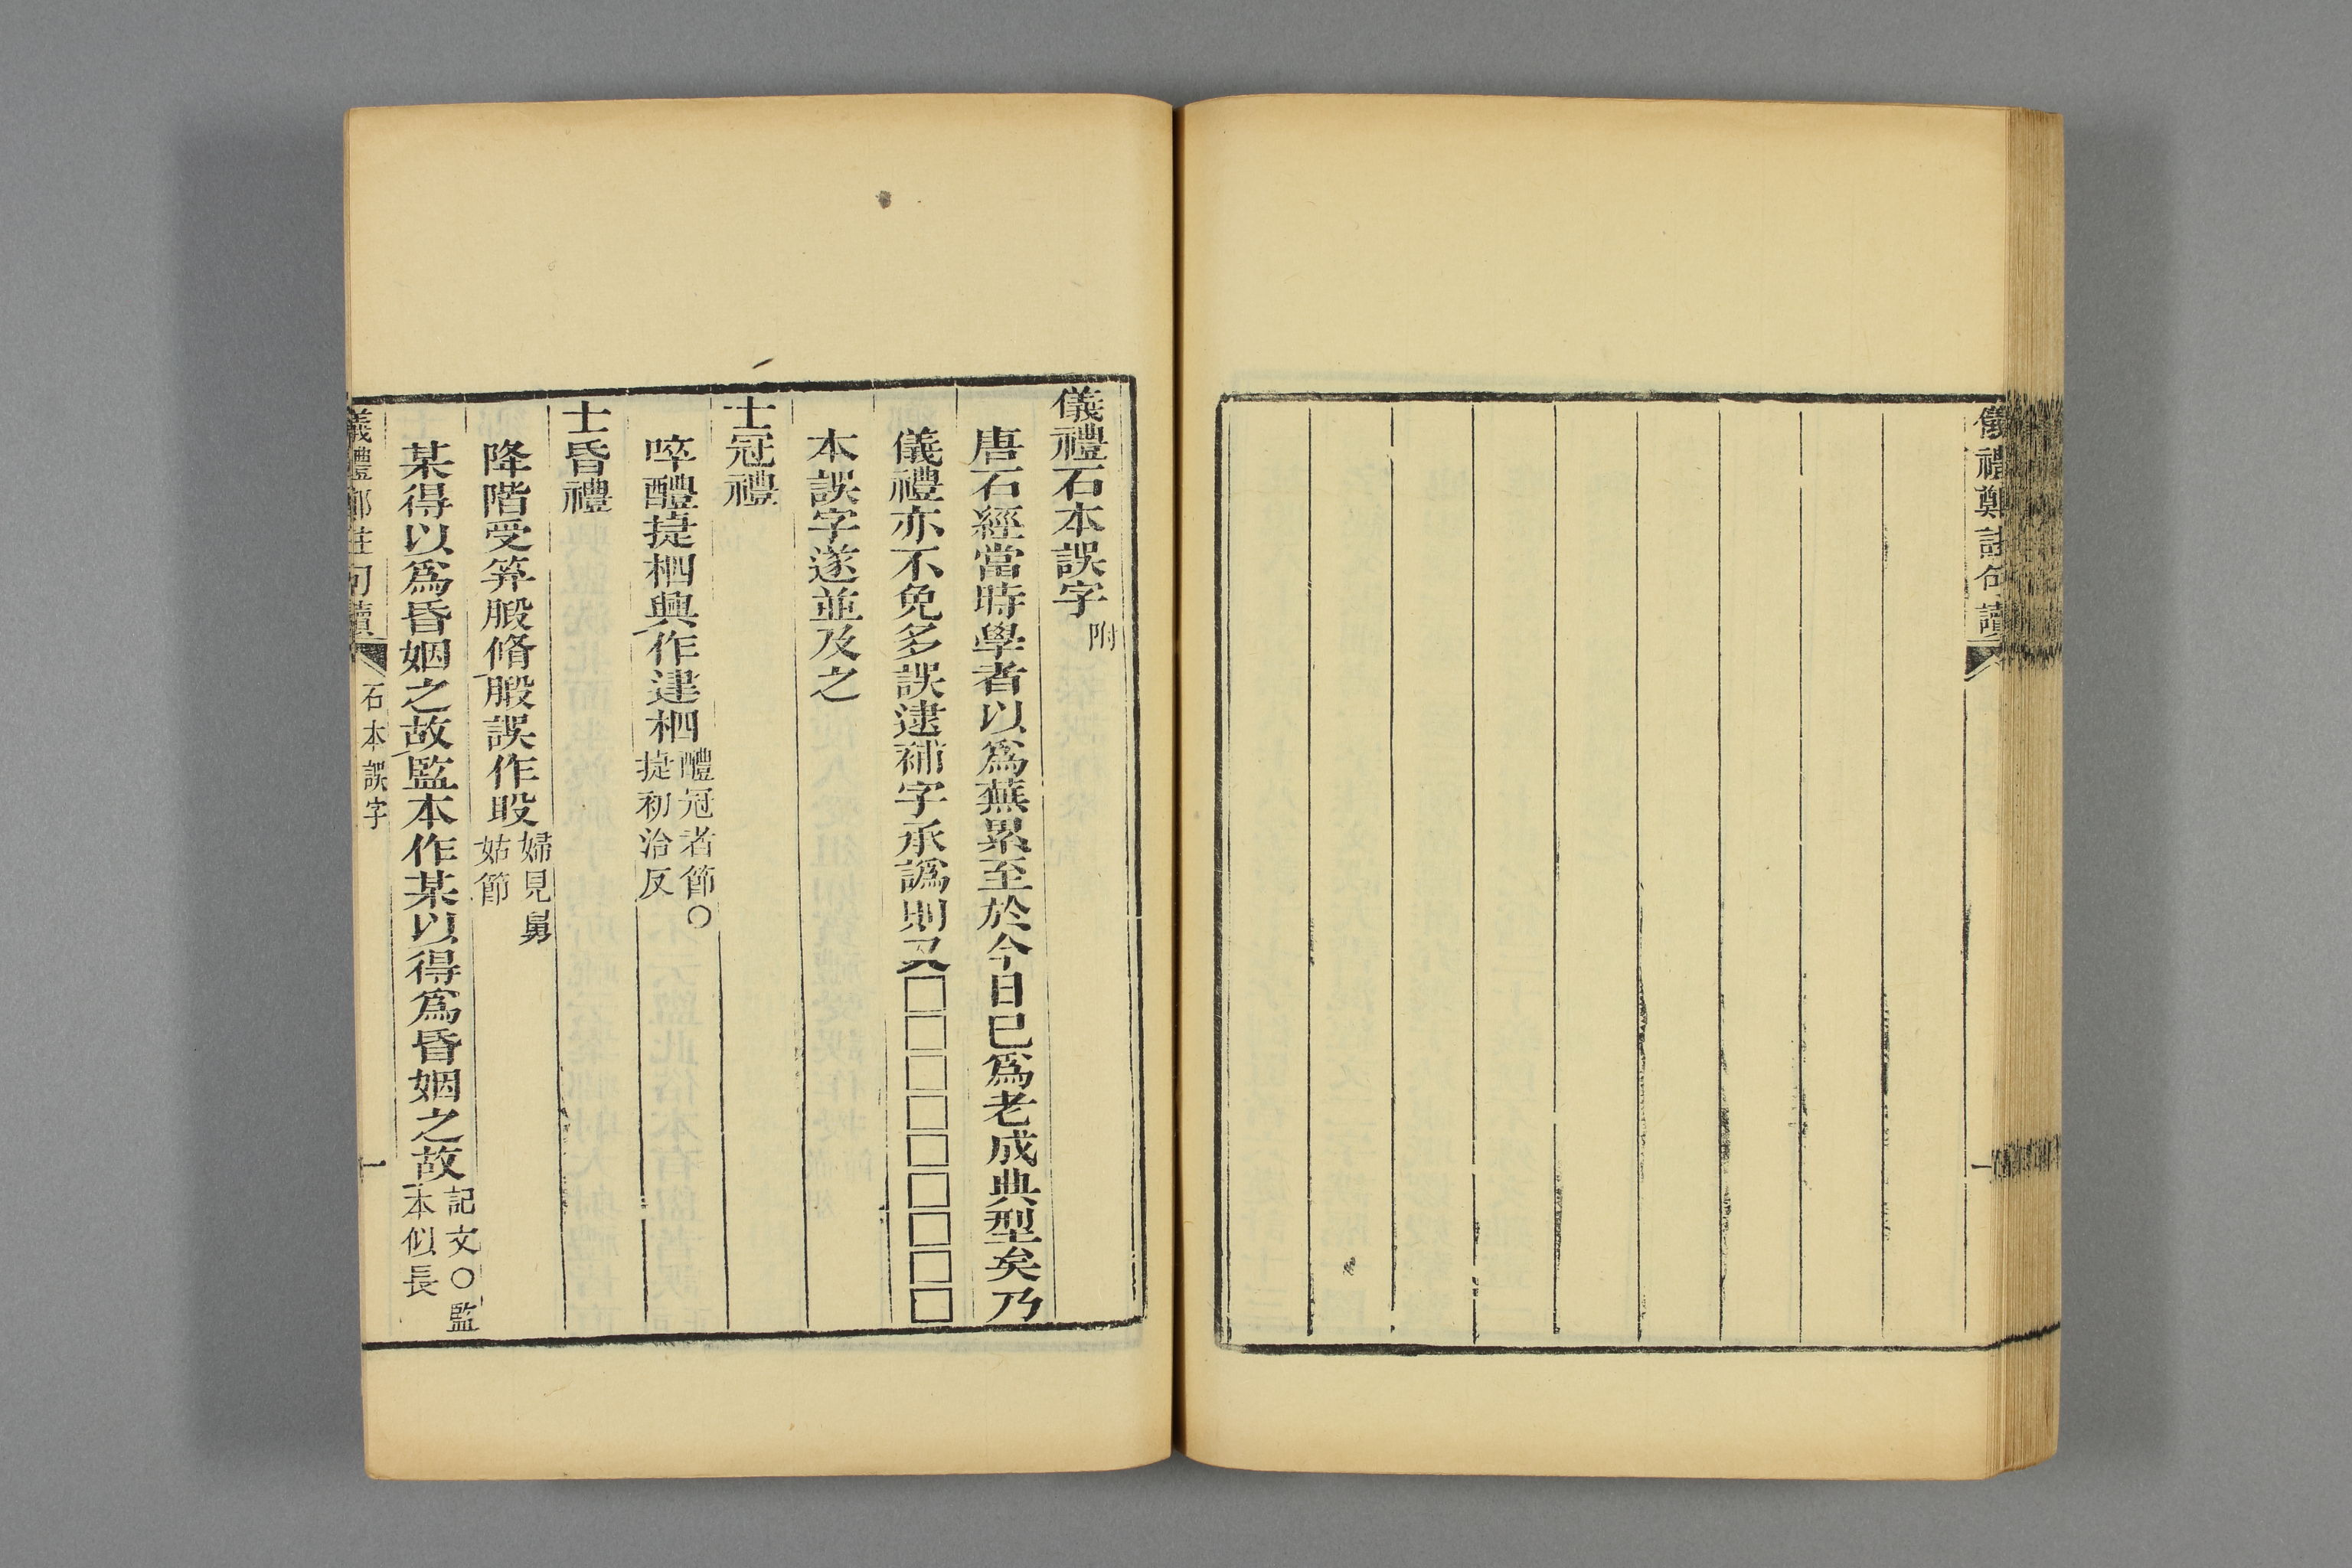 儀禮鄭註句讀
一
儀禮石本誤字附
唐石經當時學者以爲蕪累至於今日已爲老成典型矣乃
儀禮亦不免多誤逮補字承譌則又□□□□□□□□□
本誤字遂並及之
士冠禮
啐醴捷柶興作建柶醴冠者節○
捷初洽反
士昏禮
降階受笄腶脩腶誤作股婦見舅
姑節
某得以爲昏姻之故監本作某以得爲昏姻之故記文○監
本似長
儀禮鄭註句讀
石本誤字
一